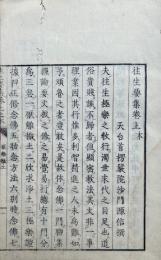 往生要集卷上本
天台首楞嚴院沙門源信撰
夫往生極樂之教行濁世末代之目足也道
俗貴賤誰不歸者但顯密教法其文非一事
理業因其行惟多利智精進之人未爲難如
予頑魯之者豈敢矣是故依念佛一門聊集
經論要文披之修之易覺易行揔有十門分
爲三卷一猒離穢土二欣求淨土三極樂證
據四正修念佛五助念方法六別時念佛七